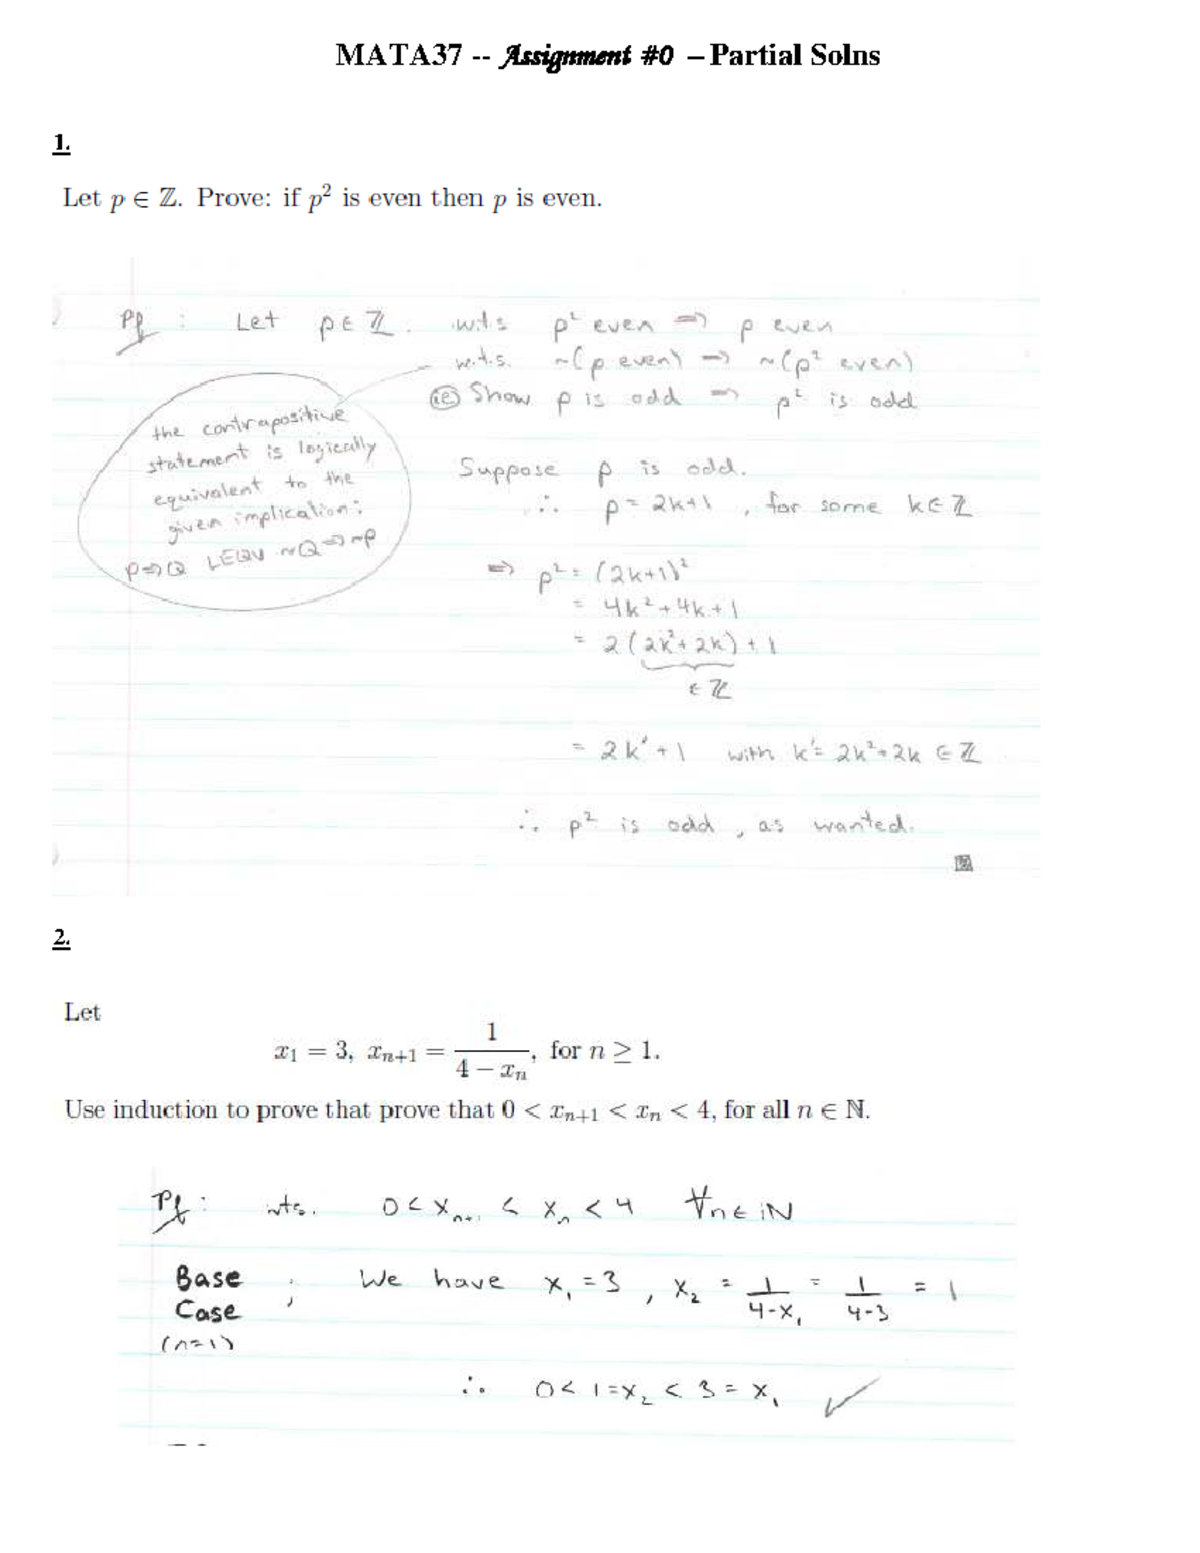 MATA37 -- Assignment #0 – Partial Solns
1.
Let p ∈ ℤ. Prove: if p² is even then p is even.
Pf : Let p ∈ ℤ. w.t.s p² even ⇒ p even
w.t.s. ~(p even) ⇒ ~(p² even)
(ie) Show p is odd ⇒ p² is odd
the contrapositive
statement is logically
equivalent to the
given implication:
P⇒Q LEQV ~Q⇒~P
Suppose p is odd.
∴ p = 2k+1 , for some k ∈ ℤ
⇒ p² = (2k+1)²
= 4k² + 4k + 1
= 2(2k² + 2k) + 1
∈ ℤ
= 2k' + 1 with k' = 2k² + 2k ∈ ℤ
∴ p² is odd , as wanted.
2.
Let
x₁ = 3, xₙ₊₁ = 1/(4 − xₙ), for n ≥ 1.
Use induction to prove that prove that 0 < xₙ₊₁ < xₙ < 4, for all n ∈ ℕ.
Pf: wts. 0 < xₙ₊₁ < xₙ < 4 ∀n ∈ ℕ
Base ; We have x₁ = 3 , x₂ = 1/(4-x₁) = 1/(4-3) = 1
Case
(n=1)
∴ 0 < 1 = x₂ < 3 = x₁ ✓